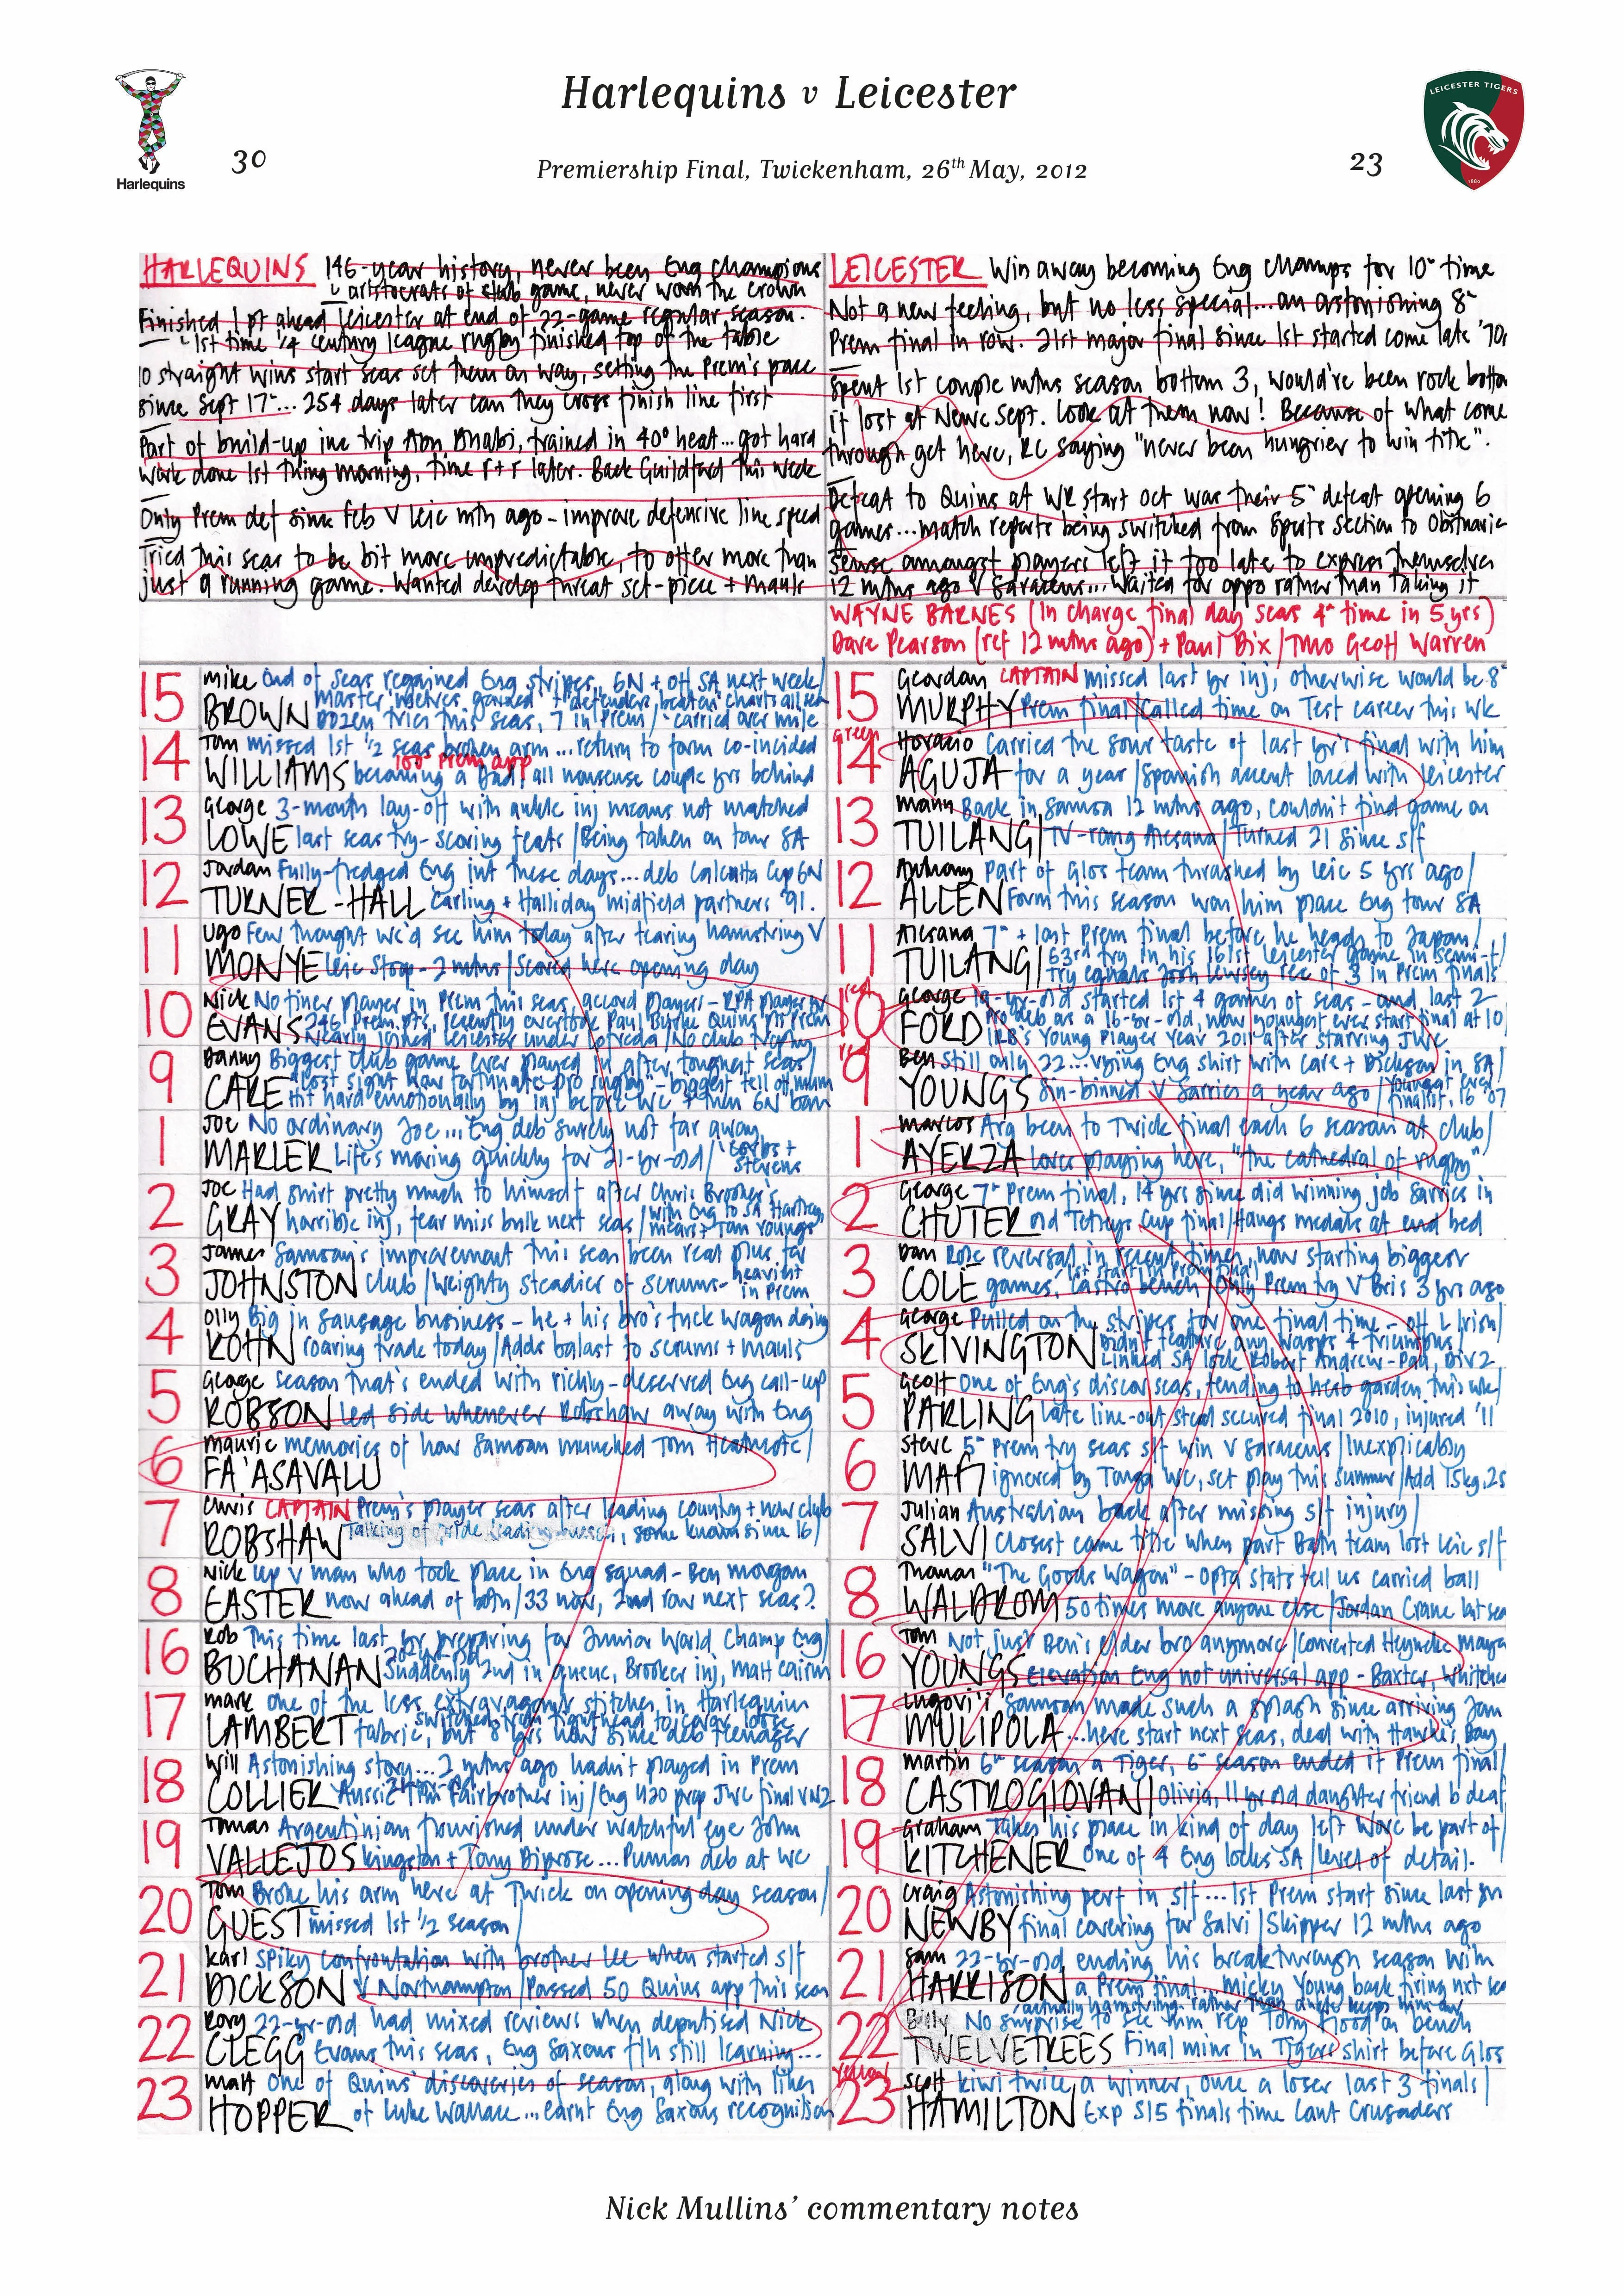 Harlequins v Leicester
LEICESTER TIGERS
1880
Harlequins
30
Premiership Final, Twickenham, 26th May, 2012
23
HARLEQUINS 146-year history, never been Eng champions
aristocrats of club game, never worn the crown
Finished 1 pt ahead Leicester at end of 22-game regular season.
1st time 1/4 century league rugby finished top of the table
10 straight wins start seas set them on way, setting the Prem's pace
since Sept 17... 254 days later can they cross finish line first
Part of build-up inc trip Abu Dhabi, trained in 40° heat...got hard
work done 1st thing morning, time r+r later. Back Guildford this week
Only Prem def since Feb v Leic mth ago - improve defensive line speed
Tried this seas to be bit more unpredictable, to offer more than
just a running game. Wanted develop threat set-piece + mauls
LEICESTER Win away becoming Eng champs for 10" time
Not a new feeling, but no less special...an astonishing 8"
Prem final in row. 21st major final since 1st started come late '70s
Spent 1st couple mths season bottom 3, would've been rock bottom
if lost at Newc Sept. Look at them now! Because of what come
through get here, RC saying "never been hungrier to win title".
Defeat to Quins at WR start Oct was their 5" defeat opening 6
games...match reports being switched from Sports Section to Obituaries
Sense amongst players left it too late to express themselves
12 mths ago v Saracens... waited for oppo rather than taking it
WAYNE BARNES (In charge final day seas 4" time in 5 yrs)
Dave Pearson (ref 12 mths ago) + Paul Dix / TMO Geoff Warren
15 Mike End of seas regained Eng stripes, 6N + off SA next week/
BROWN
Dozen tries this seas, 7 in Prem / carried over mile
14 Tom missed 1st 1/2 seas broken arm ...return to form co-incided
100" Prem app
WILLIAMS becoming a Dad! all nonsense couple yrs behind
13 George 3-month lay-off with ankle inj means not matched
LOWE last seas try-scoring feats / Being taken on tour SA
12 Jordan Fully-fledged Eng int these days... deb Calcutta Cup 6N
TURNER-HALL Carling + Halliday midfield partners '91.
11 Ugo Few thought we'd see him today after tearing hamstring v
MONYE Leic Stoop - 2 mths / Scored here opening day
10 Nick No finer player in Prem this seas, accord players - RPA player yr
EVANS 246 Prem pts, recently overtook Paul Burke Quins pts Prem
Nearly joined Leicester under Loffreda / No club trophy
9 Danny Biggest club game ever played in after toughest seas/
CARE "lost sight how fortunate pro rugby" - biggest tell off mum
Hit hard emotionally by inj before WC + then 6N ban
1 Joe No ordinary Joe... Eng deb surely not far away.
MARLER Life's moving quickly for 21-yr-old / Corbs +
Stevens
2 Joe Had shirt pretty much to himself after Chris Brooker's
GRAY horrible inj, fear miss bulk next seas / with Eng to SA Hartley,
Mears + Tom Youngs
3 James Samoan's improvement this seas been real plus for
JOHNSTON club / Weighty steadier of scrums - heaviest
in Prem
4 Olly Big in sausage business - he + his bro's tuck wagon doing
KOHN roaring trade today / Adds balast to scrums + mauls
5 George Season that's ended with richly-deserved Eng call-up
ROBSON Led side whenever Robshaw away with Eng
6 Maurie memories of how Samoan munched Tom Heathcote /
FA'ASAVALU
7 Chris CAPTAIN Prem's player seas after leading country + now club
ROBSHAW Talking of pride leading , some known since 16/
8 Nick Up v man who took place in Eng squad - Ben Morgan
EASTER now ahead of both / 33 now, 2nd row next seas?
16 Rob This time last yr preparing for Junior World Champ Eng/
BUCHANAN Suddenly 2nd in queue, Brooker inj, Matt Cairns
17 Mark One of the less extravagant stitches in Harlequin
switched from tighthead to cover loose
LAMBERT fabric, but 8 yrs now since deb teenager
18 Will Astonishing story... 2 mths ago hadn't played in Prem
COLLIER Aussie Fairbrother inj / Eng U20 prop JWC final v NZ
19 Tomas Argentinian flourished under watchful eye John
VALLEJOS Kingston + Tony Diprose... Pumas deb at WC
20 Tom Broke his arm here at Twick on opening day season/
GUEST missed 1st 1/2 season/
21 Karl Spiky confrontation with brother Lee when started s/f
DICKSON v Northampton / Passed 50 Quins app this seas
22 Rory 22-yr-old had mixed reviews when deputised Nick
CLEGG Evans this seas, Eng Saxons f/h still learning...
23 Matt One of Quins' discoveries of season, along with likes
HOPPER of Luke Wallace...earnt Eng Saxons recognition
15 Geordan CAPTAIN missed last yr inj, otherwise would be 8"
MURPHY Prem final / Called time on Test career this wk
Green
14 Horacio Carried the sour taste of last yr's final with him
AGULLA for a year / Spanish accent laced with Leicester
13 Manu Back in Samoa 12 mths ago, couldn't find game on
TUILANGI TV - rang Alesana / Turned 21 since s/f
12 Anthony Part of Glos team thrashed by Leic 5 yrs ago/
ALLEN Form this season won him place Eng tour SA
11 Alesana 7" + last Prem final before he heads to Japan/
TUILANGI 63rd try in his 161st Leicester game in semi-f/
try equals Josh Lewsey rec of 3 in Prem finals
red
10 George 19-yr-old started 1st 4 games of seas - and last 2
FORD Pro deb as a 16-yr-old, now youngest ever start final at 10/
IRB's Young Player Year 2011 after starring JWC
9 Ben Still only 22...vying Eng shirt with Care + Dickson in SA/
YOUNGS Sin-binned v Sarries a year ago / Youngest ever
finalist, 16 '07
1 Marcos Arg been to Twick final each 6 season at club/
AYERZA Loves playing here, "the cathedral of rugby"
2 George 7" Prem final, 14 yrs since did winning job Sarries in
CHUTER old Tetleys Cup final / Hangs medals at end bed
3 Dan Role reversal in recent times, now starting biggest
1st start in Prem final
COLE games, Castro bench / Only Prem try v Bris 3 yrs ago
4 George Pulled on the stripes for one final time - off L Irish/
SKIVINGTON Didn't feature any Wasps 4 triumphs/
Linked SA lock Robert Andrew - Pau, Div 2
5 Geoff One of Eng's discov seas, tending to hero garden this wk/
PARLING late line-out steal secured final 2010, injured '11
6 Steve 5" Prem try seas s/f win v Saracens / Inexplicably
MAFI ignored by Tonga WC, set play this summer / Add 15kg, 2s
7 Julian Australian back after missing s/f injury/
SALVI Closest came title when part Bath team lost Leic s/f
8 Thomas "The Goods Wagon" - Opta stats tell us carried ball
WALDROM 50 times more anyone else / Jordan Crane last seas
16 Tom Not just Ben's elder bro anymore / Converted Heyneke Meyer
YOUNGS elevation Eng not universal app - Baxter, Whitehea
17 Logovi'i Samoan made such a splash since arriving Jan
MULIPOLA ...here start next seas, deal with Hawke's Bay
18 Martin 6" season a Tiger, 6" season ended it Prem final/
CASTROGIOVANNI Olivia, 11 yr old daughter friend b deaf
19 Graham Takes his place in kind of day left Worc be part of/
KITCHENER One of 4 Eng locks SA / level of detail.
20 Craig Astonishing perf in s/f... 1st Prem start since last yrs
NEWBY final covering for Salvi / Skipper 12 mths ago
21 Sam 22-yr-old ending his breakthrough season with
HARRISON a Prem final... Micky Young back firing nxt seas
22 Billy No surprise to see him rep Toby Flood on bench
TWELVETREES Final mins in Tigers shirt before Glos
Yellow
23 Scott Kiwi twice a winner, once a loser last 3 finals/
HAMILTON Exp S15 finals time Cant Crusaders
Nick Mullins' commentary notes